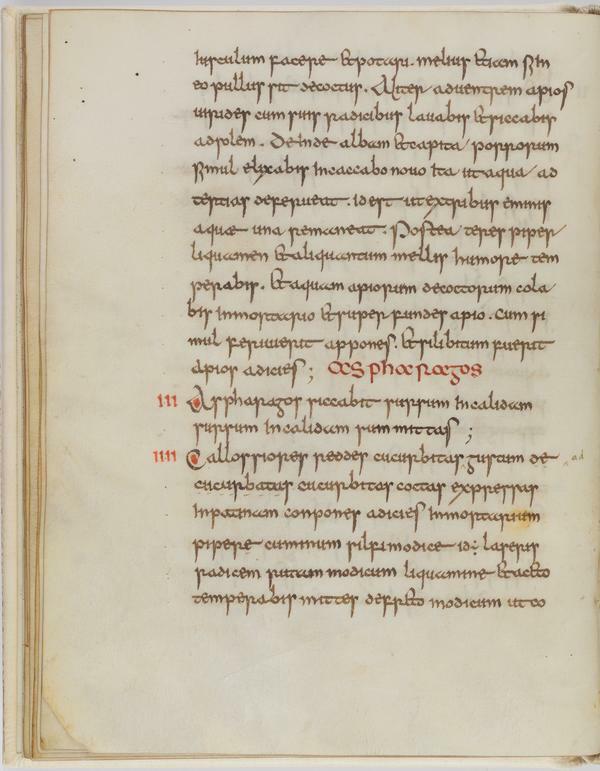 iusculum facere et potari. melius etiam si in
eo pullus sit decoctus. Aliter ad ventrem apios
virides cum suis radicibus lavabis et siccabis
ad solem. Deinde album et capita porrorum
simul elixabis in caccabo novo ita ut aqua ad
tertias deferveat. id est ut ex tribus eminis
aquae una remaneat. Postea teres piper
liquamen et aliquantum mellis humore tem
perabis. et aquam apiorum decoctorum cola
bis in mortario et superfundes apio. Cum si
mul feruuerit appones. et si libitum fuerit
apios adicies;
III Aspharagos siccabit sursum in calidam
sursum in calidam summittas;
IIII Callossiores reddes cucurbitas gustum de ad
cucurbatus cucurbitas coctas expressas
in patinam conpones adicies in mortarium
pipere cuminum silfi modice id: laseris
radicem rutam modicum liquamine et aceto
temperabis mittes defrito modicum ut co